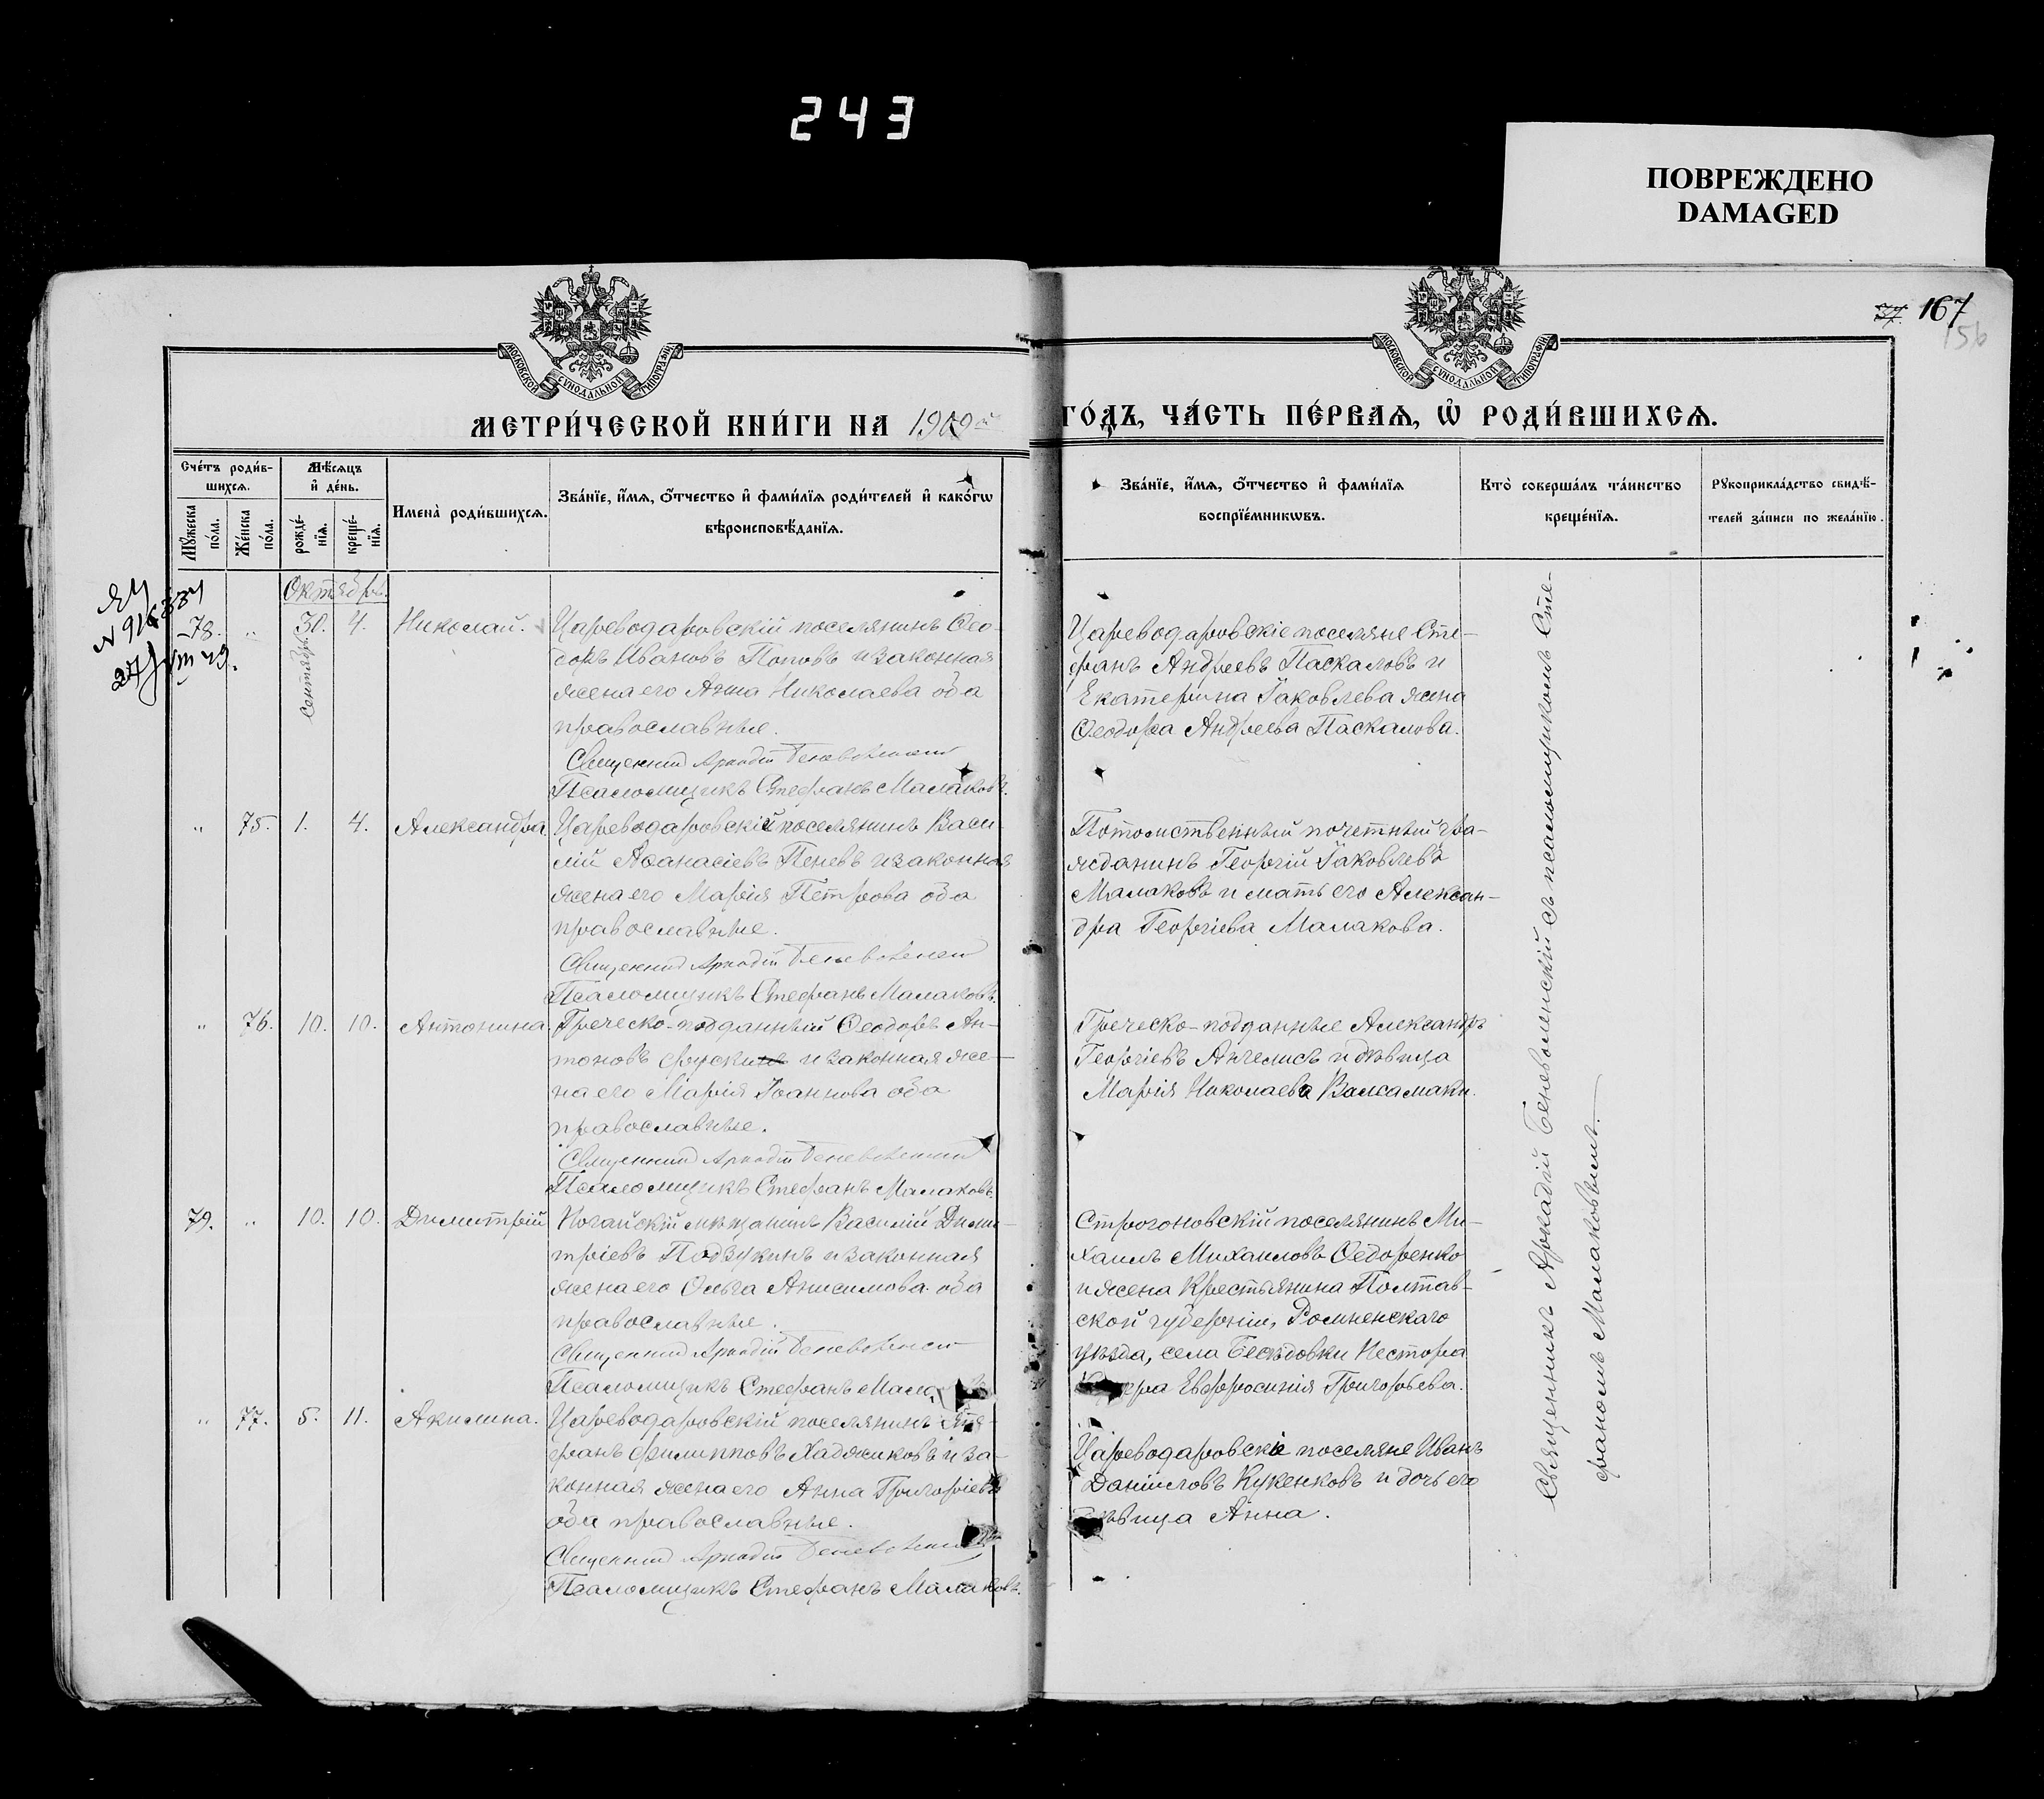 243
ПОВРЕЖДЕНО
DAMAGED
37. 167
156
МОСКОВСКОЙ СѴНОДАЛЬНОЙ ТИПОГРАФІИ
МОСКОВСКОЙ СѴНОДАЛЬНОЙ ТИПОГРАФІИ
МЕТРИ́ЧЕСКОЙ КНИ́ГИ НА 1909й ГО́ДЪ, ЧА́СТЬ ПЕ́РВАѦ, Ѡ҆ РОДИ́ВШИХСѦ.
Сче́тъ роди́в-
шихсѧ.
Мꙋ́жеска по́ла.
Же́нска по́ла.
Мѣ́сѧцъ
и҆ де́нь.
рожде́-
нїѧ.
креще́-
нїѧ.
И҆мена̀ роди́вшихсѧ.
Зва́нїе, и҆́мѧ, ѻ҆́тчество и҆ фами́лїѧ роди́телей и҆ како́гѡ
вѣроисповѣ́данїѧ.
Зва́нїе, и҆́мѧ, ѻ҆́тчество и҆ фами́лїѧ
воспрїе́мникѡвъ.
Кто̀ соверша́лъ та́инство
креще́нїѧ.
Рꙋкоприкла́дство свидѣ́-
телей за́писи по жела́нїю.
Октябрь.
78. " 30. 4. Николай.
Сентября
Цареводаровскій поселянинъ Ѳео-
доръ Ивановъ Поповъ и законная
жена его Анна Николаева оба
православные.
Священникъ Аркадій Беневоленскій
Псаломщикъ Стефанъ Малаковъ.
Цареводаровскіе поселяне Сте-
фанъ Андреевъ Паскаловъ и
Екатерина Іаковлева жена
Ѳеодора Андреева Паскалова.
" 75. 1. 4. Александра
Цареводаровскій поселянинъ Васи-
лій Аѳанасіевъ Пеневъ и законная
жена его Марія Петрова оба
православные.
Священникъ Аркадій Беневоленскій
Псаломщикъ Стефанъ Малаковъ.
Потомственный почетный гра-
жданинъ Георгій Іаковлевъ
Малаковъ и мать его Алексан-
дра Георгіева Малакова.
" 76. 10. 10. Антонина.
Греческо-подданный Ѳеодоръ Ан-
тоновъ и законная же-
на его Марія Іоаннова оба
православные.
Священникъ Аркадій Беневоленскій
Псаломщикъ Стефанъ Малаковъ.
Греческо-подданные Александръ
Георгіевъ Ангелисъ и дѣвица
Марія Николаева Валсамаки.
79. " 10. 10. Димитрій
Ногайскій мѣщанинъ Василій Дими-
тріевъ Подзукинъ и законная
жена его Ольга Анисимова оба
православные.
Священникъ Аркадій Беневоленскій
Псаломщикъ Стефанъ
Строгоновскій поселянинъ Ми-
хаилъ Михаиловъ Ѳедоренко
и жена крестьянина Полтав-
ской губерніи, Роменскаго
уѣзда, села Бесѣдовки Нестора
Евфросинія Григорьева.
" 77. 5. 11. Акилина.
Цареводаровскій поселянинъ Сте-
фанъ Филипповъ Хаджиковъ и за-
конная жена его Анна Григоріева
оба православные.
Священникъ Аркадій Беневоленскій
Псаломщикъ Стефанъ Малаковъ.
Цареводаровскіе поселяне Иванъ
Даниловъ Куженковъ и дочь его
дѣвица Анна.
Священникъ Аркадій Беневоленскій съ псаломщикомъ Сте-
фаномъ Малаковымъ.